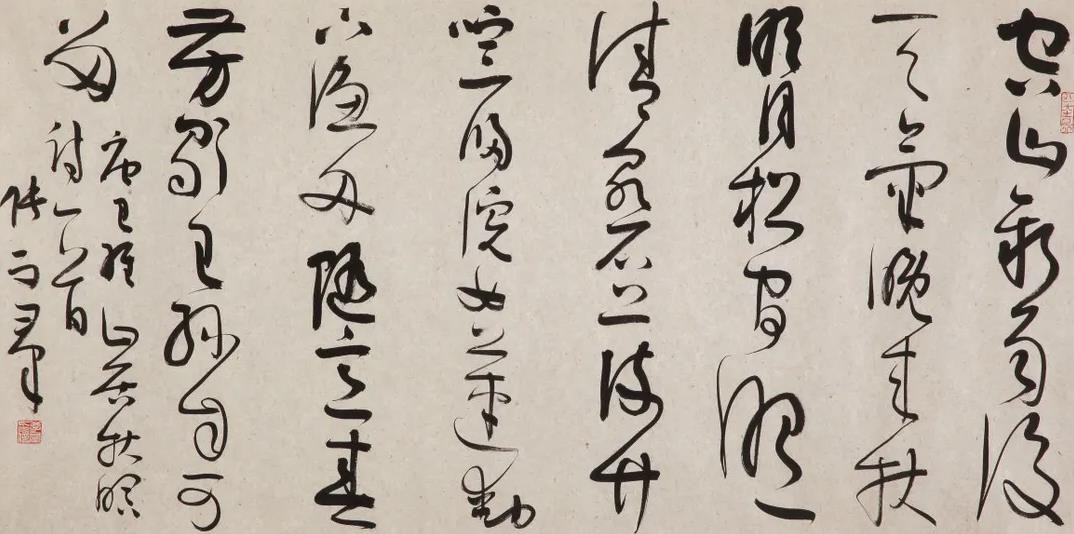 空山新雨後
天氣晚來秋
明月松間照
清泉石上流竹
喧歸浣女蓮動
下漁舟隨意春
芳歇王孫自可
留
唐王維山居秋暝
詩一首
張